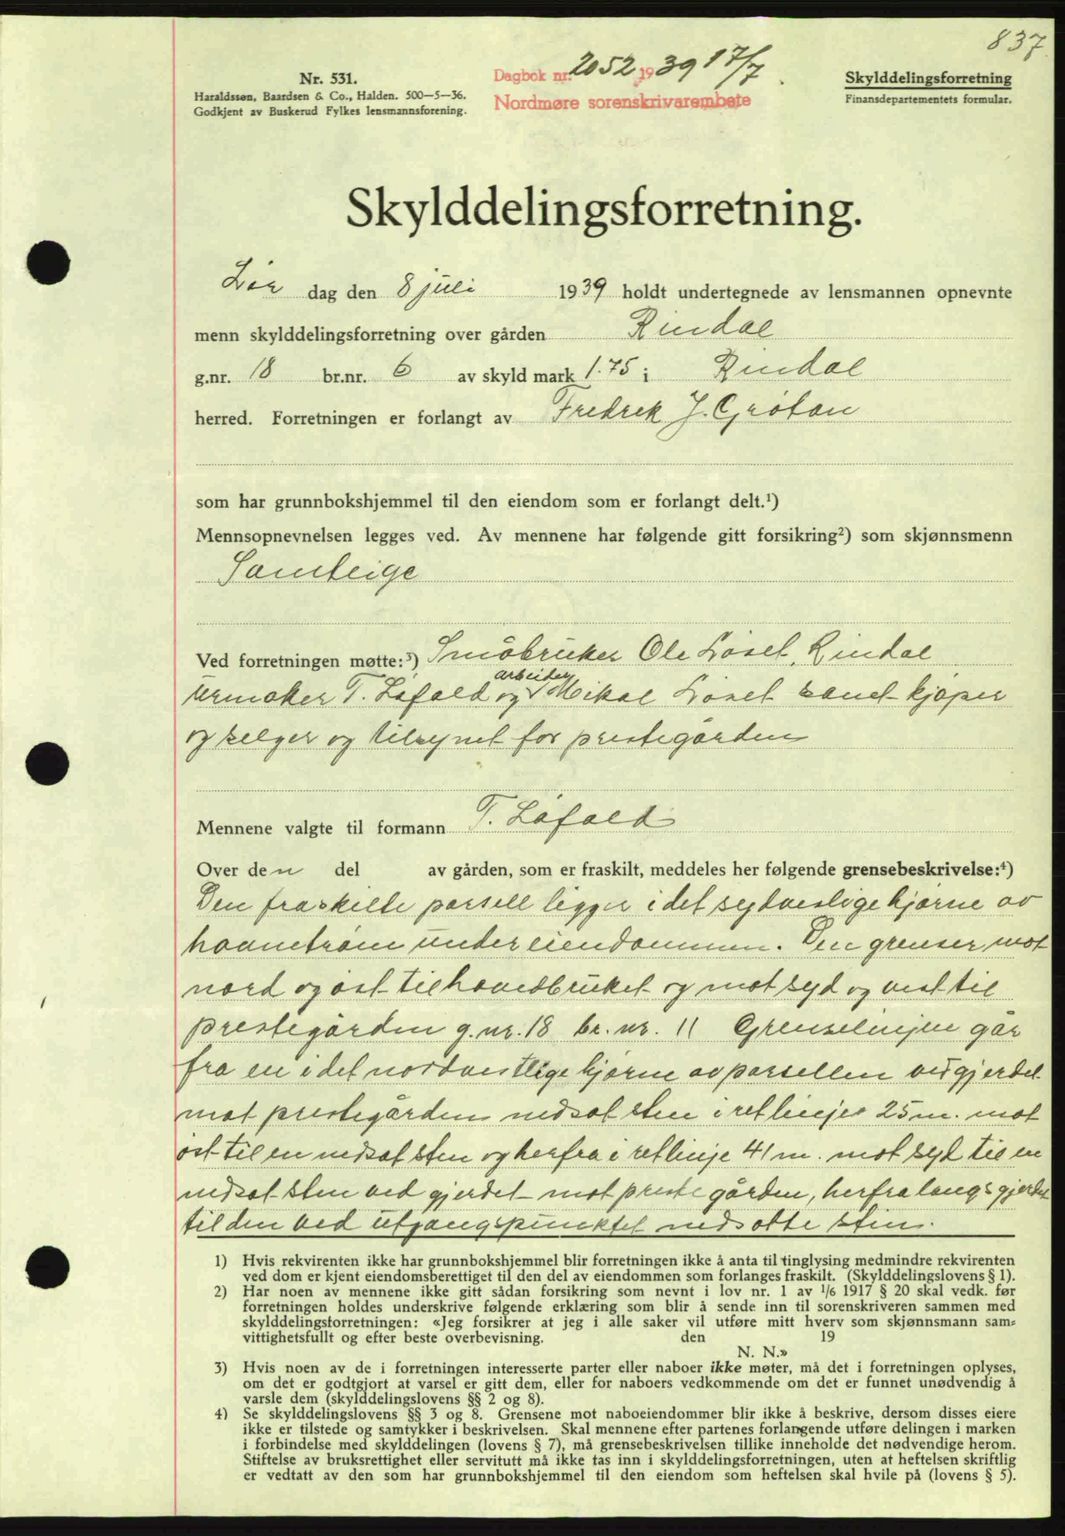 837
Nr. 531.
Haraldssøn, Baardsen & Co., Halden. 500—5—36.
Godkjent av Buskerud Fylkes lensmannsforening.
Dagbok nr. 2052 1939 17/7
Nordmøre sorenskrivarembete
Skylddelingsforretning
Finansdepartementets formular.
Skylddelingsforretning.
Lør dag den 8 juli 1939 holdt undertegnede av lensmannen opnevnte
menn skylddelingsforretning over gården Rindal
g.nr. 18 br.nr. 6 av skyld mark 1.75 i Rindal
herred. Forretningen er forlangt av Fredrek J. Grøtan
som har grunnbokshjemmel til den eiendom som er forlangt delt.¹)
Mennsopnevnelsen legges ved. Av mennene har følgende gitt forsikring²) som skjønnsmenn
Samtlige
Ved forretningen møtte:³) Småbruker Ole Løset, Rindal
urmaker T. Løfald og arbeider Mikal Løset samt kjøper
og selger og tilsynet for prestegården
Mennene valgte til formann T. Løfald
Over den del av gården, som er fraskilt, meddeles her følgende grensebeskrivelse:⁴)
Den fraskilte parsell ligger i det sydvestlige hjørne av
under eiendommen. Den grenser mot
nord og øst til hovedbruket og mot syd og vest til
prestegården g.nr. 18 br.nr. 11 Grenselinjen går
fra en i det nordvestlige hjørne av parsellen ved gjerdet
mot prestegården nedsat sten i ret linje 25 m. mot
øst til en nedsat sten og herfra i ret linje 41 m. mot syd til en
nedsat sten ved gjerdet mot prestegården, herfra langs gjerdet
til den ved utgangspunktet nedsatte sten.
1) Hvis rekvirenten ikke har grunnbokshjemmel blir forretningen ikke å anta til tinglysing medmindre rekvirenten
ved dom er kjent eiendomsberettiget til den del av eiendommen som forlanges fraskilt. (Skylddelingslovens § 1).
2) Har noen av mennene ikke gitt sådan forsikring som nevnt i lov nr. 1 av ¹/6 1917 § 20 skal vedk. før
forretningen holdes underskrive følgende erklæring som blir å sende inn til sorenskriveren sammen med
skylddelingsforretningen: «Jeg forsikrer at jeg i alle saker vil utføre mitt hverv som skjønnsmann sam-
vittighetsfullt og efter beste overbevisning. den 19
N. N.»
3) Hvis noen av de i forretningen interesserte parter eller naboer ikke møter, må det i forretningen oplyses,
om det er godtgjort at varsel er gitt dem, eller for naboers vedkommende om det er funnet unødvendig å
varsle dem (skylddelingslovens §§ 2 og 8).
4) Se skylddelingslovens §§ 3 og 8. Grensene mot naboeiendommer blir ikke å beskrive, dersom disses eiere
ikke er tilstede og samtykker i beskrivelsen. Skal mennene efter partenes forlangende utføre delingen i marken
i forbindelse med skylddelingen (lovens § 7), må grensebeskrivelsen tillike inneholde det nødvendige herom.
Stiftelse av bruksrettighet eller servitutt må ikke tas inn i skylddelingsforretningen, uten at heftelsen skriftlig
er vedtatt av den som har grunnbokshjemmel til den eiendom som heftelsen skal hvile på (lovens § 5).